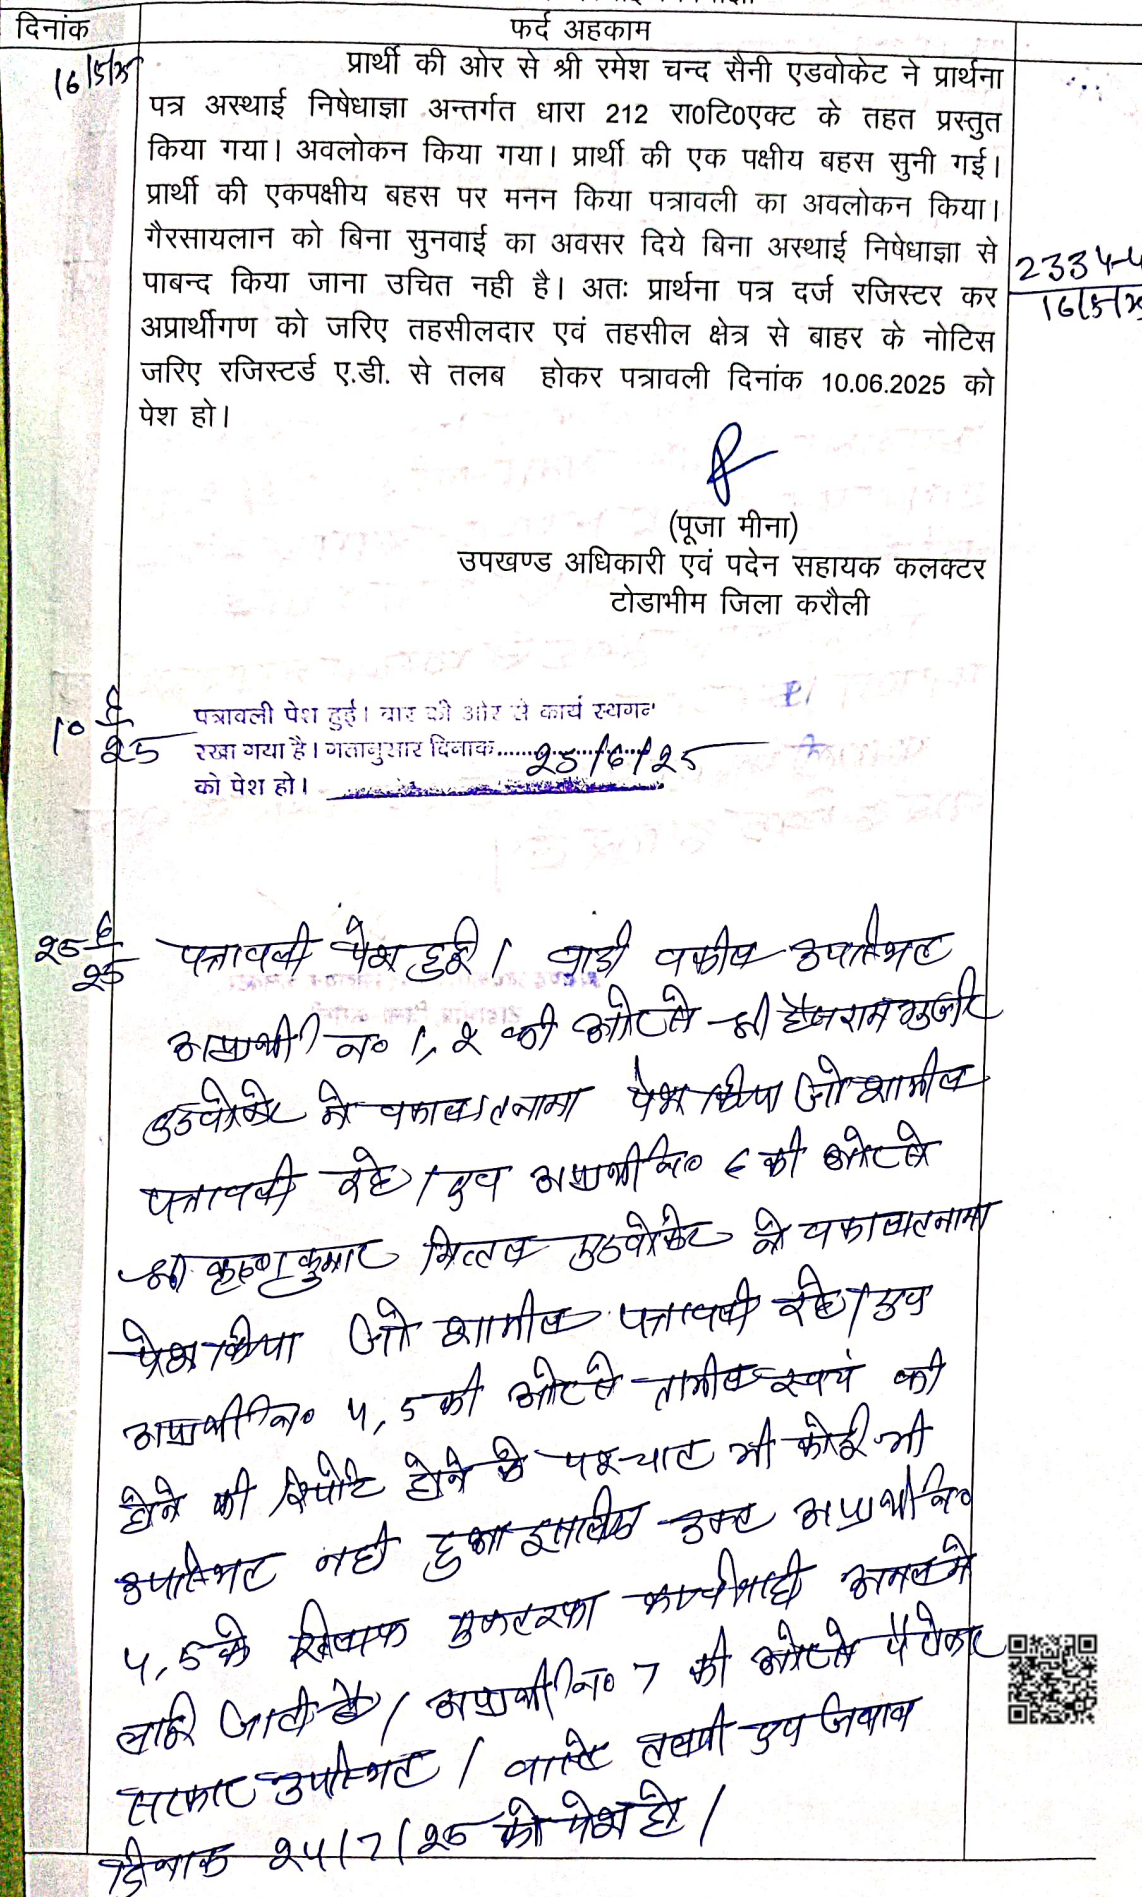 दिनांक
फर्द अहकाम
16/5/25
प्रार्थी की ओर से श्री रमेश चन्द सैनी एडवोकेट ने प्रार्थना
पत्र अस्थाई निषेधाज्ञा अन्तर्गत धारा 212 रा0टि0एक्ट के तहत प्रस्तुत
किया गया। अवलोकन किया गया। प्रार्थी की एक पक्षीय बहस सुनी गई।
प्रार्थी की एकपक्षीय बहस पर मनन किया पत्रावली का अवलोकन किया।
गैरसायलान को बिना सुनवाई का अवसर दिये बिना अस्थाई निषेधाज्ञा से
पाबन्द किया जाना उचित नही है। अतः प्रार्थना पत्र दर्ज रजिस्टर कर
अप्रार्थीगण को जरिए तहसीलदार एवं तहसील क्षेत्र से बाहर के नोटिस
जरिए रजिस्टर्ड ए.डी. से तलब होकर पत्रावली दिनांक 10.06.2025 को
पेश हो।
16/5/25
(पूजा मीना)
उपखण्ड अधिकारी एवं पदेन सहायक कलक्टर
टोडाभीम जिला करौली
10 6/25
पत्रावली पेश हुई। बार की ओर से कार्य स्थगन
रखा गया है। गतानुसार दिनांक......25/6/25
को पेश हो।
25 6/25
पत्रावली पेश हुई। वादी वकील उपस्थित
अप्रार्थी न० 1, २ की ओर से श्री राम गुर्जर
एडवोकेट ने वकालतनामा पेश किया जो शामील
पत्रावली रहे। एव अप्रार्थी न० 6 की ओर से
श्री कृष्ण कुमार मित्तल एडवोकेट ने वकालतनामा
पेश किया जो शामील पत्रावली रहे। एव
अप्रार्थी न० 4, 5 की ओर से तामील स्वयं की
होने की रिपोर्ट होने के पश्चात भी कोई भी
उपस्थित नही हुआ इसलिए उक्त अप्रार्थी न०
4, 5 के खिलाफ एकतरफा कार्यवाही अमल मे
लाई जाती है। अप्रार्थी न० 7 की ओर से पैरोकार
सरकार उपस्थित। वास्ते तलबी एव जवाब
दिनाक २4/7/२5 को पेश हो।